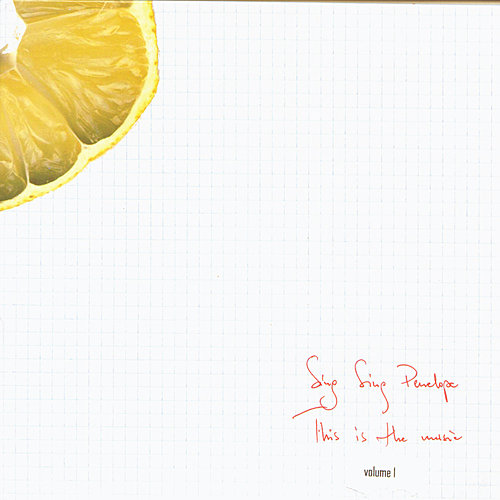 Sing Sing Penelope
This is the music
volume 1